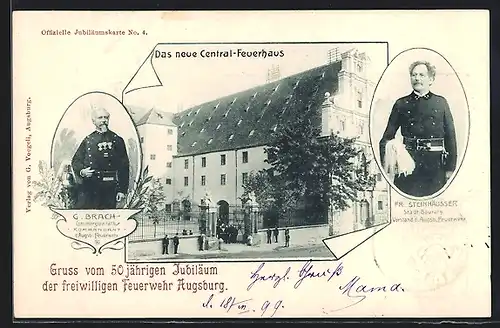 Offizielle Jubiläumskarte No. 4.
Das neue Central-Feuerhaus
Verlag von G. Voegeli, Augsburg.
G. BRACH
KOMMANDANT
FR. STEINHÄUSSER
Städt. Baurat
Vorstand d. Feuerwehr
Gruss vom 50jährigen Jubiläum
der freiwilligen Feuerwehr Augsburg.
Herzl. Gruß
Mama.
d. 18/VII 99.